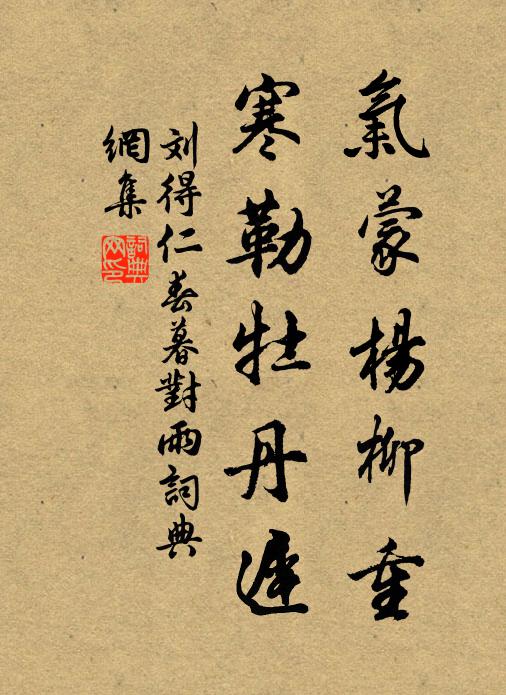 氣蒙楊柳重
寒勒牡丹遲
刘得仁春暮對雨詞典
網集
詞典
网印